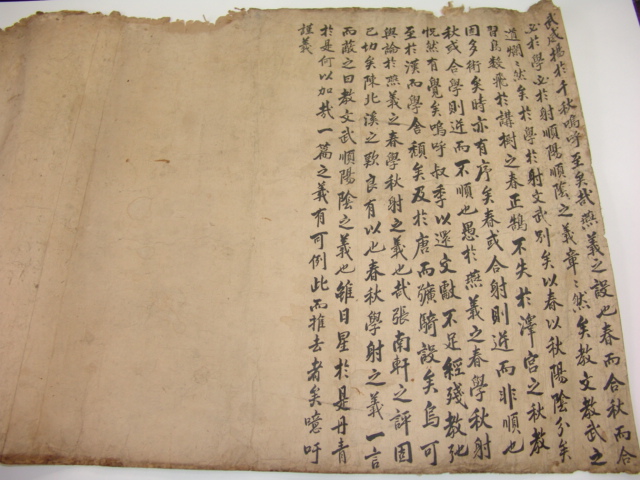 武咸揚於千秋嗚呼至矣哉燕義之設也春而合秋而合
並於學並於射順陽順陰之義章〻然矣教文教武之
道爛〻然矣於學於射文武別矣以春以秋陽陰分矣
習烏數飛於講樹之春正鵠不失於澤宮之秋教
固多術矣時亦有序矣春或合射則逆而非順也
秋或合學則逆而不順也愚於燕義之春學秋射
怳然有覺矣嗚呼叔季以還文獻不足經殘教弛
至於漢而學舍頹矣及於唐而彍騎設矣烏可
與論於燕義之春學秋射之義也哉張南軒之評固
已切矣陳北溪之歎良有以也春秋學射之義一言
而蔽之曰教文武順陽陰之義也雖日星於是丹青
於是何以加哉一篇之義有可例此而推去者矣噫吁
謹義